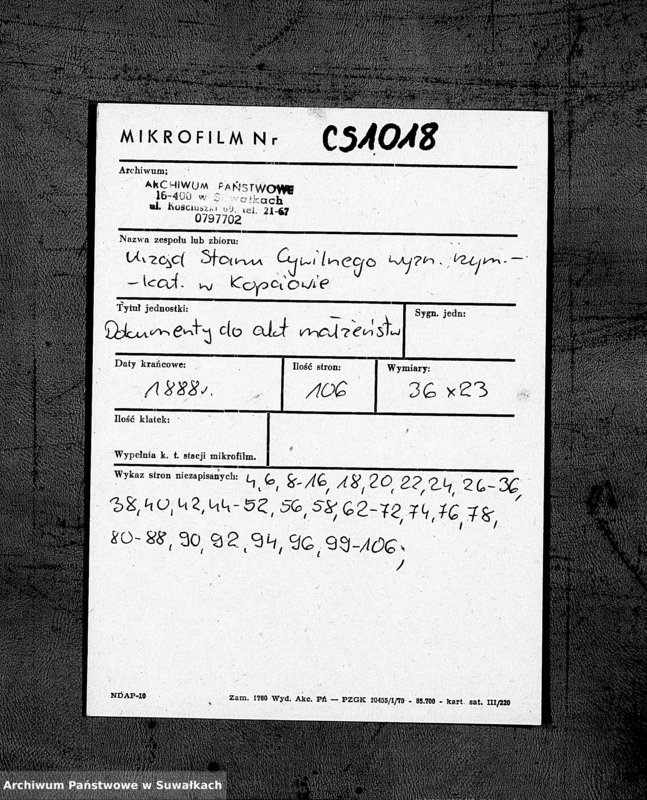 MIKROFILM Nr CS1018
Archiwum:
ARCHIWUM PAŃSTWOWE
16-400 w Suwałkach
ul. Kościuszki 69, tel. 21-67
0797702
Nazwa zespołu lub zbioru:
Urząd Stanu Cywilnego wyzn. rzym.-
-kat. w Kopciowie
Tytuł jednostki:
Sygn. jedn:
Dokumenty do akt małżeństw
Daty krańcowe:
Ilość stron:
Wymiary:
1888r.
106
36 x 23
Ilość klatek:
Wypełnia k. t. stacji mikrofilm.
Wykaz stron niezapisanych: 4, 6, 8-16, 18, 20, 22, 24, 26-36,
38, 40, 42, 44-52, 56, 58, 62-72, 74, 76, 78,
80-88, 90, 92, 94, 96, 99-106;
NDAP-10
Zam. 1760 Wyd. Akc. Pń — PZGK 10455/1/79 - 85.700 - kart. sat. III/220
Archiwum Państwowe w Suwałkach